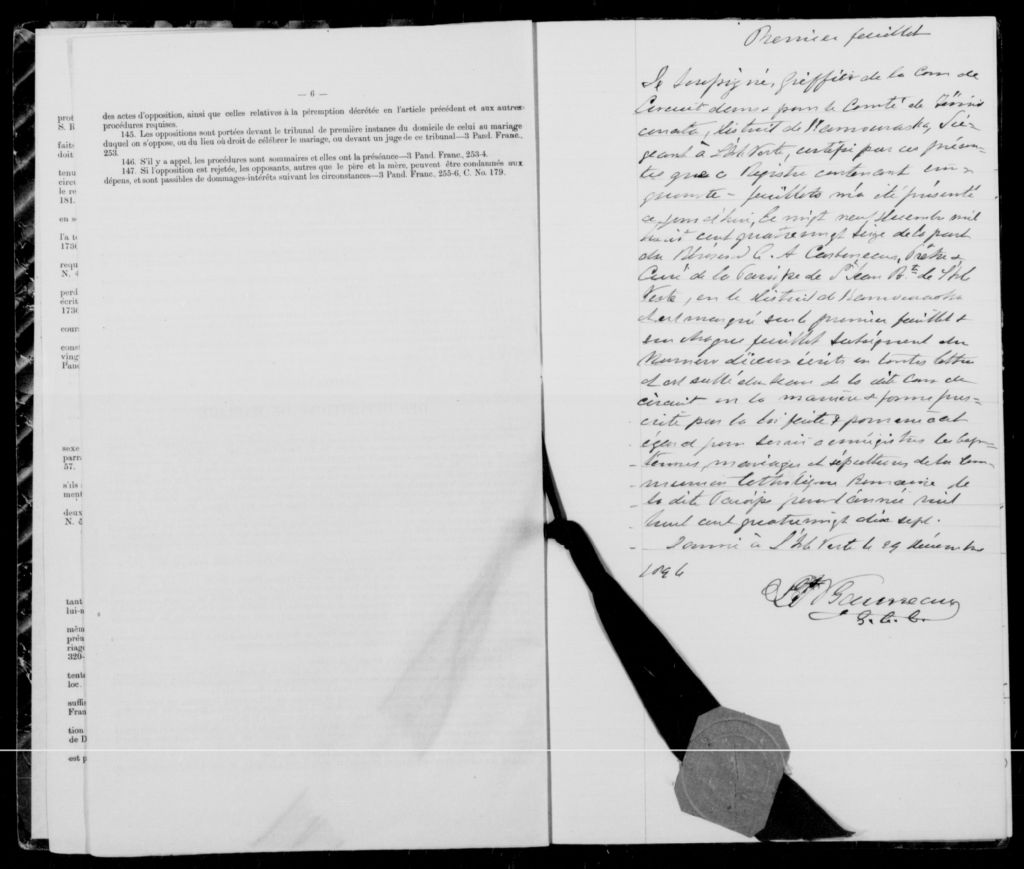 prot
S. B
faits
doit
tenu
circu
le re
181.
en s
l'a te
173(
requ
N. 4
perd
écrit
173(
cour
const
ving
Pand
sexe
parra
57.
s'ils
ment
deux
N. d
tant
lui-n
mêm
préa
riage
320-
tenta
loc.
suffis
Fran
tion
de D
est p
— 6 —
des actes d'opposition, ainsi que celles relatives à la péremption décrétée en l'article précédent et aux autres
procédures requises.
145. Les oppositions sont portées devant le tribunal de première instance du domicile de celui au mariage
duquel on s'oppose, ou du lieu où droit de célébrer le mariage, ou devant un juge de ce tribunal—3 Pand. Franc.,
253.
146. S'il y a appel, les procédures sont sommaires et elles ont la préséance—3 Pand. Franc., 253-4.
147. Si l'opposition est rejetée, les opposants, autres que le père et la mère, peuvent être condamnés aux
dépens, et sont passibles de dommages-intérêts suivant les circonstances—3 Pand. Franc. 255-6, C. No. 179.
Premier feuillet
Je soussigné, Greffier de la Cour de
Circuit dans & pour le Comté de Témis
couata, district de Kamouraska, Sié-
geant à L'Isle Verte, certifie par ces présen-
tes que ce Registre contenant cin-
quante feuillets m'a été présenté
ce jourd'hui, le vingt neuf décembre mil
huit cent quatrevingt seize de la part
du Révérend C. A. Prêtre &
Curé de la Paroisse de St Jean Bte de L'Isle
Verte, en le district de Kamouraska
et est marqué sur le premier feuillet &
sur chaque feuillet subséquent du
Numéro d'iceux écrits en toutes lettres
et est scellé du sceau de la dite Cour de
circuit en la manière & forme pres-
crite par la loi faite & pourvue à cet
égard pour servir à enregistrer les bap-
têmes, mariages et sépultures de la Com-
munion Catholique Romaine de
la dite Paroisse pour l'année mil
huit cent quatrevingt dix sept.
Donné à L'Isle Verte le 29 décembre
1896
G. C. C.